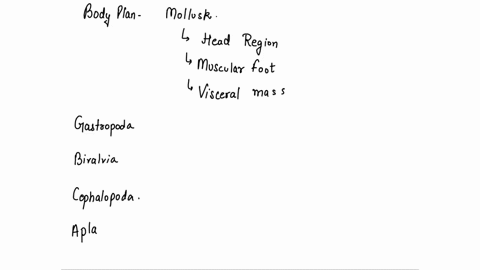 Body Plan- Mollusk.
↳ Head Region
↳ Muscular foot
↳ Visceral mass
Gastropoda
Bivalvia
Cephalopoda.
Apla